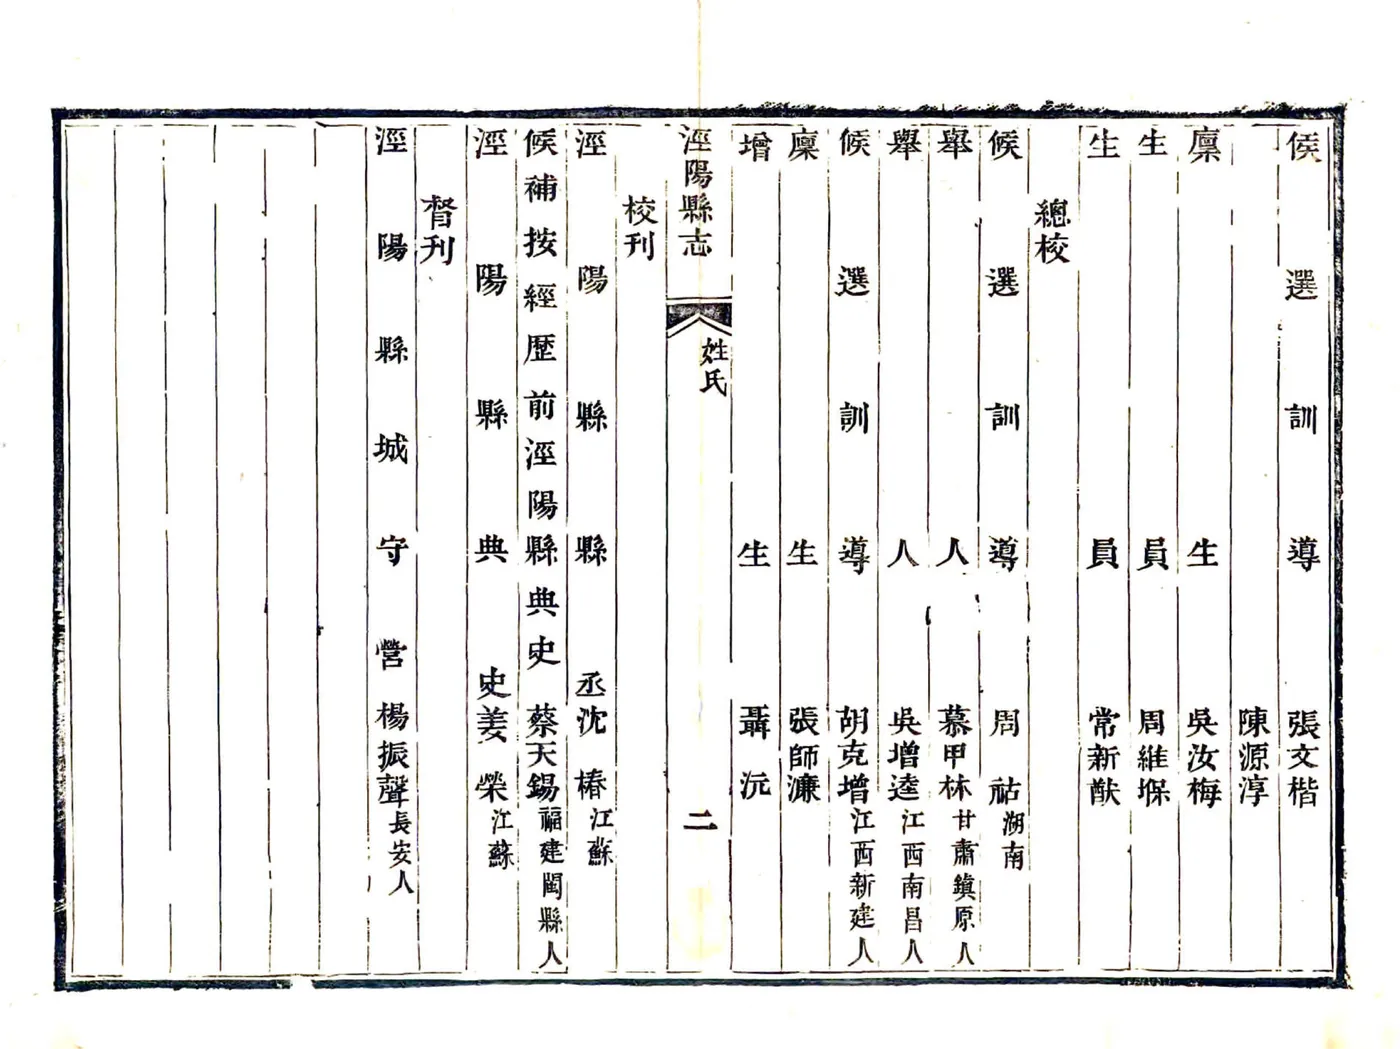 候選訓導張文楷
陳源淳
廩生吳汝梅
生員周維堢
生員常新猷
總校
候選訓導周祜湖南
舉人慕甲林甘肅鎮原人
舉人吳增逵江西南昌人
候選訓導胡克增江西新建人
廩生張師濂
增生聶沅
涇陽縣志
姓氏
二
校刊
涇陽縣縣丞沈椿江蘇
候補按經歷前涇陽縣典史蔡天錫福建閩縣人
涇陽縣典史姜榮江蘇
督刊
涇陽縣城守營楊振聲長安人